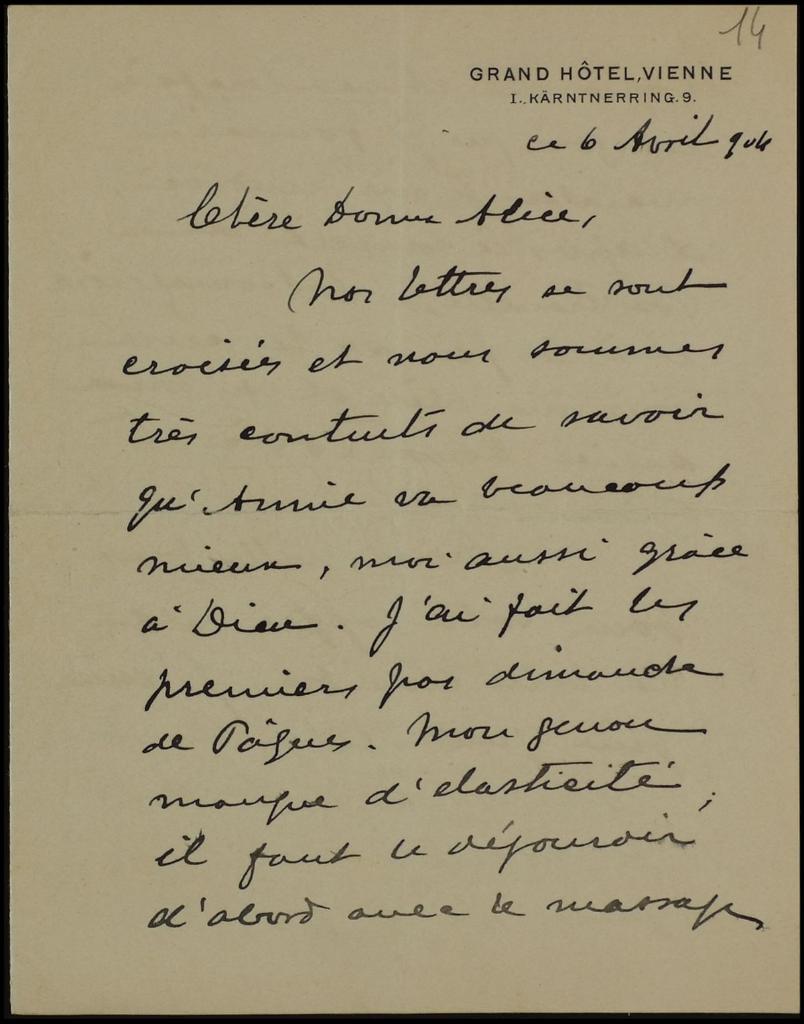 14
GRAND HÔTEL, VIENNE
I., KÄRNTNERRING. 9.
ce 6 Avril 904
Chère Donna Alice,
Nos lettres se sont
croisées et nous sommes
très contents de savoir
qu'Annie va beaucoup
mieux, moi aussi grâce
à Dieu. J'ai fait les
premiers pas dimanche
de Pâques. Mon genou
manque d'élasticité,
il faut le
d'abord avec le massage